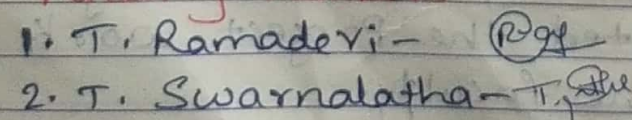 1. T. Ramadevi -
2. T. Swarnalatha - T.